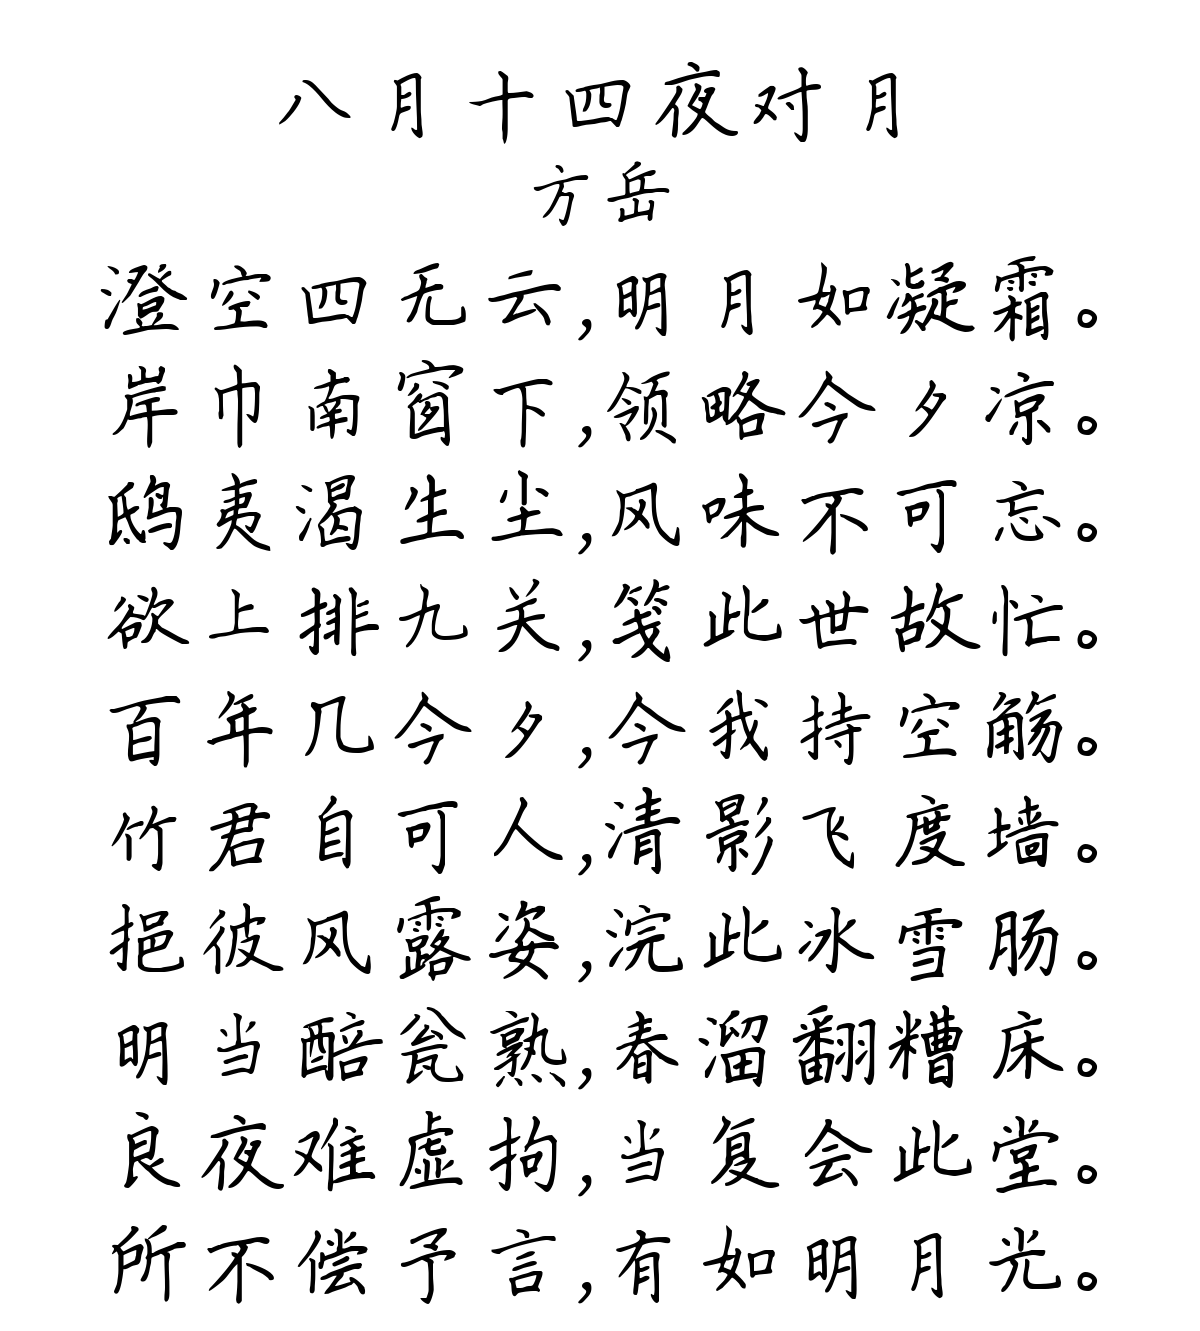 八月十四夜对月
方岳
澄空四无云,明月如凝霜。
岸巾南窗下,领略今夕凉。
鸱夷渴生尘,风味不可忘。
欲上排九关,笺此世故忙。
百年几今夕,今我持空觞。
竹君自可人,清影飞度墙。
挹彼风露姿,浣此冰雪肠。
明当醅瓮熟,春溜翻糟床。
良夜难虚拘,当复会此堂。
所不偿予言,有如明月光。